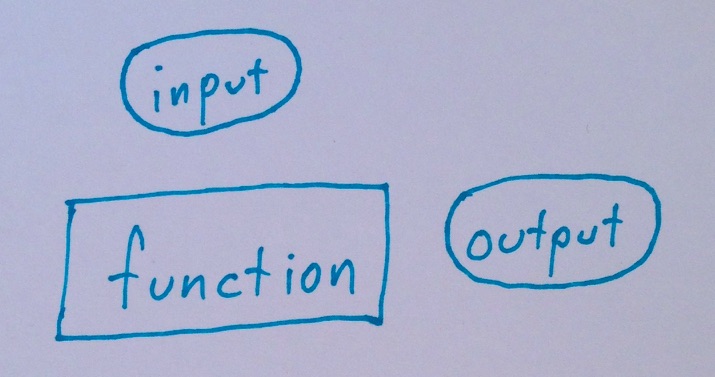 input
function
output